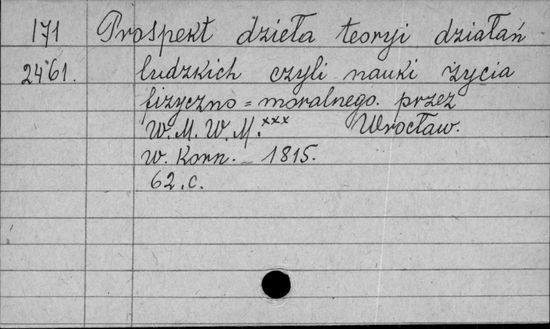 171 Prospekt dzieła teoryi działań
2461. ludzkich czyli nauki życia
fizyczno=moralnego. przez
W. M. W. M.xxx Wrocław.
W. Korn. _ 1815.
62.c.